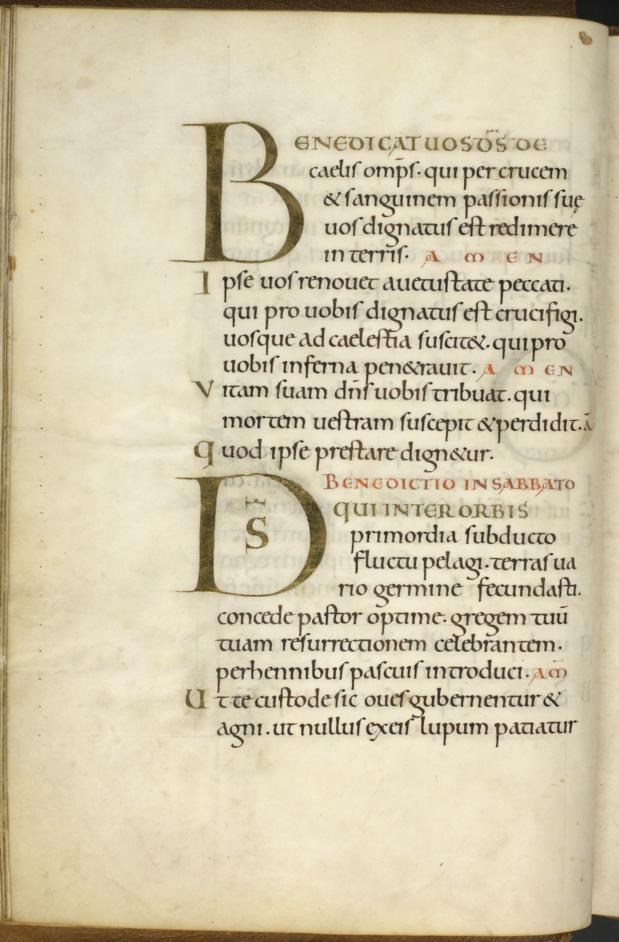 BENEDICAT UOS D̅S̅ DE
caelis omp̅s· qui per crucem
& sanguinem passionis suę
uos dignatus est redimere
in terris· AMEN
Ipse uos renouet a uetustate peccati·
qui pro uobis dignatus est crucifigi·
uosque ad caelestia suscit&· qui pro
uobis inferna pen&rauit· AMEN
Vitam suam dn̅s uobis tribuat· qui
mortem uestram suscepit & perdidit· A̅
quod ipse prestare dign&ur·
BENEDICTIO IN SABBATO
D̅S̅ QUI INTER ORBIS
primordia subducto
fluctu pelagi· terras ua
rio germine fecundasti·
concede pastor optime· gregem tuū
tuam resurrectionem celebrantem·
perhennibus pascuis introduci· AM̅
Ut te custode sic oues gubernentur &
agni· ut nullus ex eis lupum patiatur